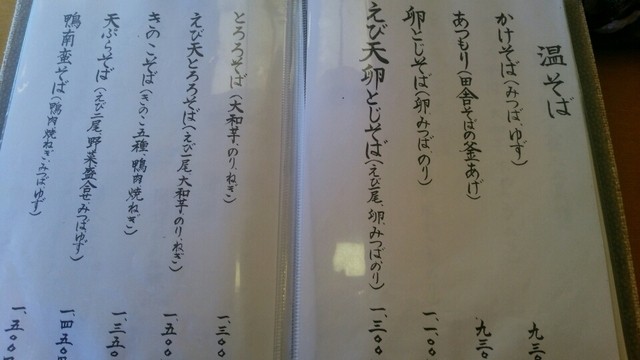 温そば
かけそば（みつば、ゆず） 九三
あつもり（田舎そばの釜あげ） 九三〇
卵とじそば（卵、みつば、のり） 一、一〇〇
えび天卵とじそば（えび一尾、卵、みつば、のり） 一、三〇〇
とろろそば（大和芋、のり、ねぎ） 一、三〇〇
えび天とろろそば（えび一尾、大和芋、のり、ねぎ） 一、五〇〇
きのこそば（きのこ五種 鴨肉 焼ねぎ） 一、三五〇
天ぷらそば（えび二尾、野菜盛合せ、みつば、ゆず） 一、四五〇
鴨南蛮そば（鴨肉、焼ねぎ、みつば、ゆず） 一、五〇